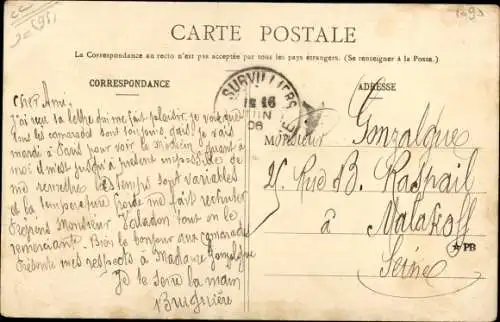 CARTE POSTALE
La Correspondance au recto n'est pas acceptée par tous les pays étrangers. (Se renseigner à la Poste.)
CORRESPONDANCE
ADRESSE
SURVILLIERS
16
JUIN
06
Cher Ami,
J'ai reçu la lettre qui me fait plaisir, je vois que
tous les camarades sont toujours je vais
mardi à Paris pour voir le Médecin quant à
moi il m'est jusqu'à présent impossible de
me remettre les temps sont variables
et la température froide me fait rechuter
Monsieur Valadon tout en le
remerciant. Bien le bonjour aux camarades
Présente mes respects à Madame Gonzalgue
Je te serre la main
Brugière
Monsieur Gonzalgue
25 Rue B. Raspail
à Malakoff
Seine
PB